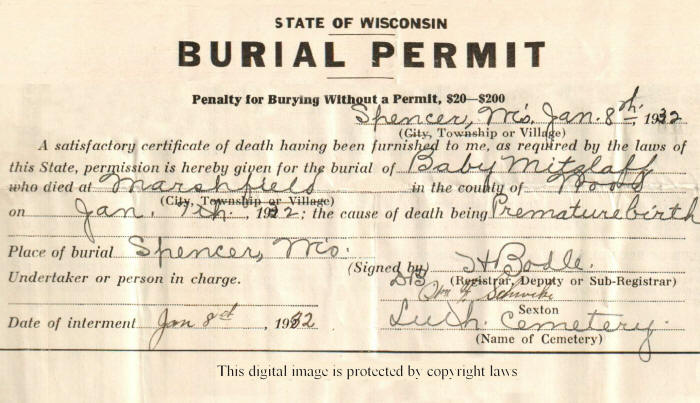 STATE OF WISCONSIN
BURIAL PERMIT
Penalty for Burying Without a Permit, $20—$200
Spencer, Wis. Jan. 8th. , 1932
(City, Township or Village)
A satisfactory certificate of death having been furnished to me, as required by the laws of
this State, permission is hereby given for the burial of Baby Mitzlaff
who died at Marshfield in the county of Wood
(City, Township or Village)
on Jan. 7th. , 1932; the cause of death being Premature birth
Place of burial Spencer, Wis.
(Signed by) H Bodle.
Undertaker or person in charge. (Registrar, Deputy or Sub-Registrar)
Sexton
Date of interment Jan 8d , 1932 Luth. Cemetery.
(Name of Cemetery)
This digital image is protected by copyright laws